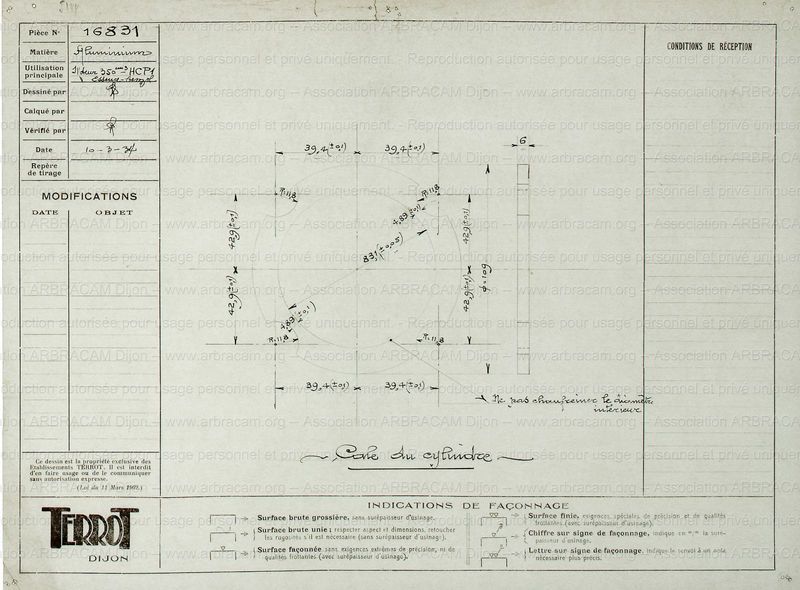 Pièce N° 16831
Matière Aluminium
Utilisation principale 350 cm3 - HCP1
Dessiné par
Calqué par
Vérifié par
Date 10-3-34
Repère de tirage
MODIFICATIONS
DATE OBJET
CONDITIONS DE RÉCEPTION
39,4(±0,1) 39,4(±0,1)
6
R.11,8 R.11,8
42,9(±0,1) 42,9(±0,1)
4,89(±0,1)
83,1(±0,05)
φ=109
42,9(±0,1) 42,9(±0,1)
4,89(±0,1)
R.11,8 R.11,8
39,4(±0,1) 39,4(±0,1)
Ne pas chanfreiner le diamètre
intérieur
Cale du cylindre
Ce dessin est la propriété exclusive des
Etablissements TERROT. Il est interdit
d'en faire usage ou de le communiquer
sans autorisation expresse.
(Loi du 11 Mars 1902.)
TERROT
DIJON
INDICATIONS DE FAÇONNAGE
Surface brute grossière, sans surépaisseur d'usinage.
Surface brute unie; respecter aspect et dimensions, retoucher
les rayons s'il est nécessaire (sans surépaisseur d'usinage).
Surface façonnée sans exigences extrêmes de précision, ni de
qualités frottantes (avec surépaisseur d'usinage).
Surface finie, exigences spéciales de précision et de qualités
frottantes (avec surépaisseur d'usinage).
Chiffre sur signe de façonnage, indique en m/m la suré-
paisseur d'usinage.
Lettre sur signe de façonnage, indique le renvoi à un note
nécessaire plus précis.
www.arbracam.org - Association ARBRACAM Dijon - www.arbracam.org
Reproduction autorisée pour usage personnel et privé uniquement.